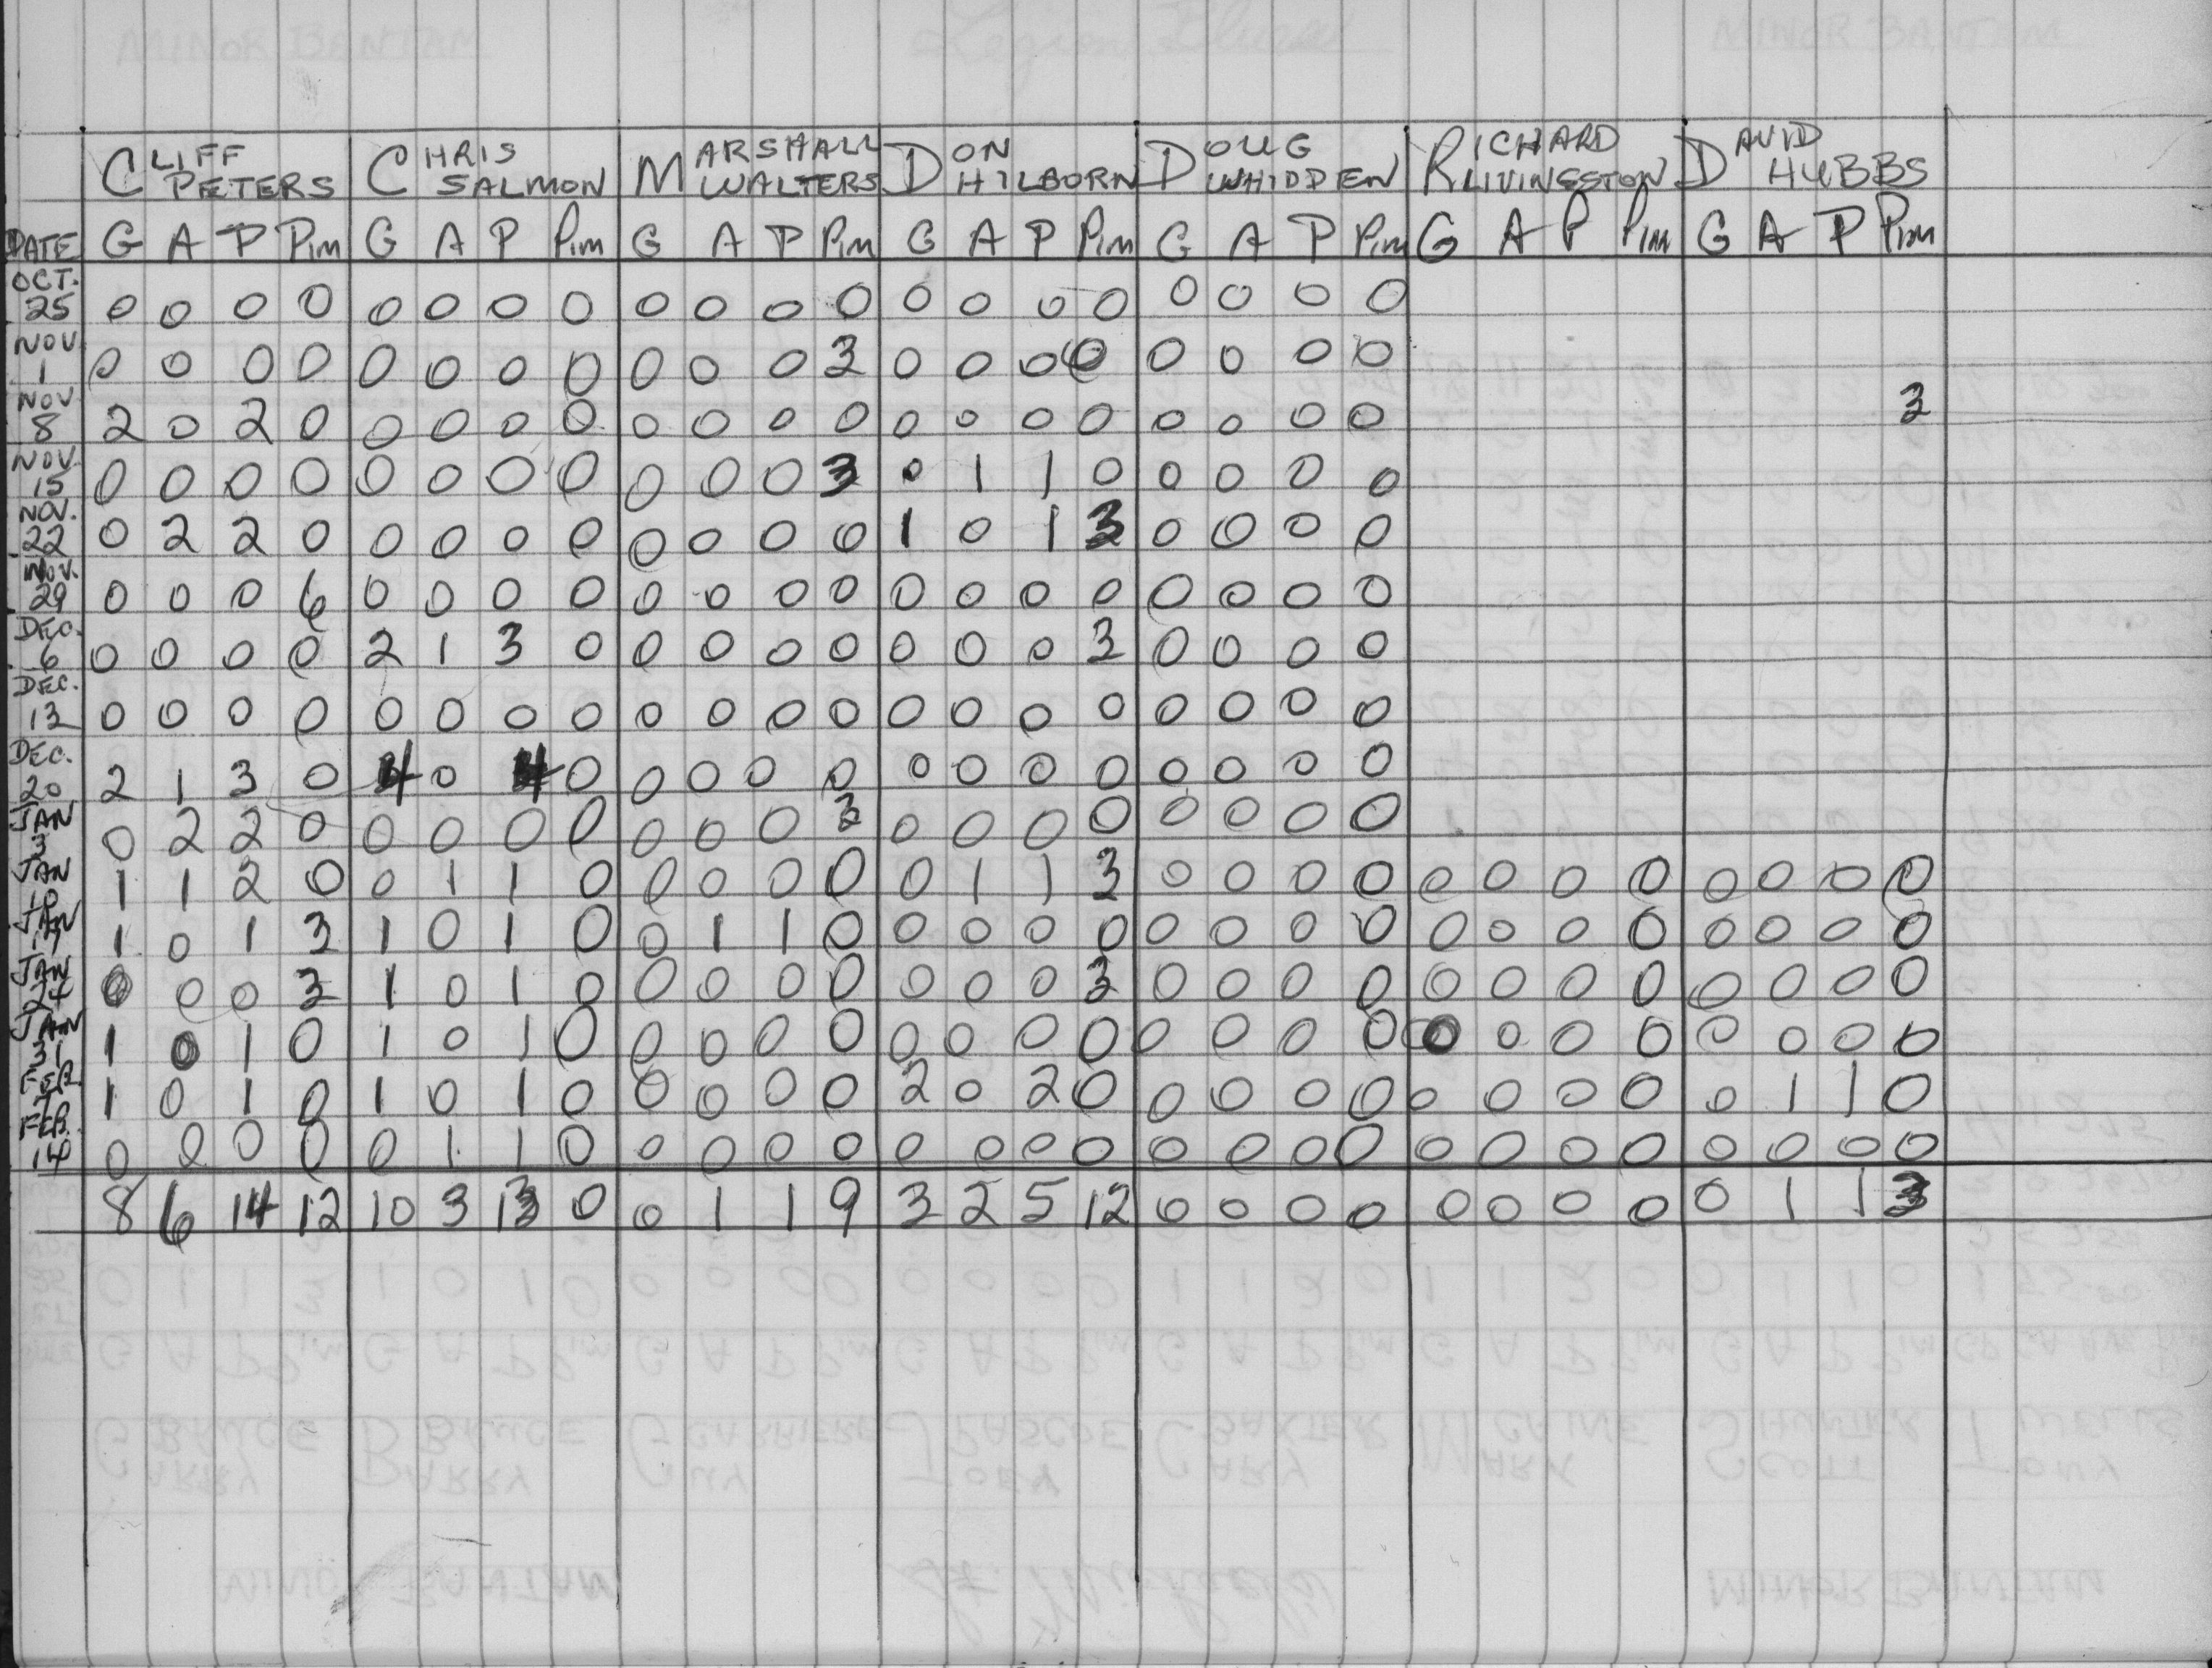 CLIFF PETERS CHRIS SALMON MARSHALL WALTERS DON HILBORN DOUG WHIDDEN RICHARD LIVINGSTON DAVID HUBBS
DATE G A P Pim G A P Pim G A P Pim G A P Pim G A P Pim G A P Pim G A P Pim
OCT. 25 0 0 0 0 0 0 0 0 0 0 0 0 0 0 0 0 0 0 0 0
NOV 1 0 0 0 0 0 0 0 0 0 0 0 3 0 0 0 0 0 0 0 0
NOV 8 2 0 2 0 0 0 0 0 0 0 0 0 0 0 0 0 0 0 0 0 3
NOV. 15 0 0 0 0 0 0 0 0 0 0 0 3 0 1 1 0 0 0 0 0
NOV. 22 0 2 2 0 0 0 0 0 0 0 0 0 1 0 1 3 0 0 0 0
NOV. 29 0 0 0 6 0 0 0 0 0 0 0 0 0 0 0 0 0 0 0 0
DEC. 6 0 0 0 0 2 1 3 0 0 0 0 0 0 0 0 3 0 0 0 0
DEC. 13 0 0 0 0 0 0 0 0 0 0 0 0 0 0 0 0 0 0 0 0
DEC. 20 2 1 3 0 4 0 4 0 0 0 0 0 0 0 0 0 0 0 0 0
JAN 3 0 2 2 0 0 0 0 0 0 0 0 3 0 0 0 0 0 0 0 0
JAN 10 1 1 2 0 0 1 1 0 0 0 0 0 0 1 1 3 0 0 0 0 0 0 0 0 0 0 0 0
JAN 17 1 0 1 3 1 0 1 0 0 1 1 0 0 0 0 0 0 0 0 0 0 0 0 0 0 0 0 0
JAN 24 0 0 0 3 1 0 1 0 0 0 0 0 0 0 0 3 0 0 0 0 0 0 0 0 0 0 0 0
JAN 31 1 0 1 0 1 0 1 0 0 0 0 0 0 0 0 0 0 0 0 0 0 0 0 0 0 0 0 0
FEB 7 1 0 1 0 1 0 1 0 0 0 0 0 2 0 2 0 0 0 0 0 0 0 0 0 0 1 1 0
FEB. 14 0 0 0 0 0 1 1 0 0 0 0 0 0 0 0 0 0 0 0 0 0 0 0 0 0 0 0 0
8 6 14 12 10 3 13 0 0 1 1 9 3 2 5 12 0 0 0 0 0 0 0 0 0 1 1 3